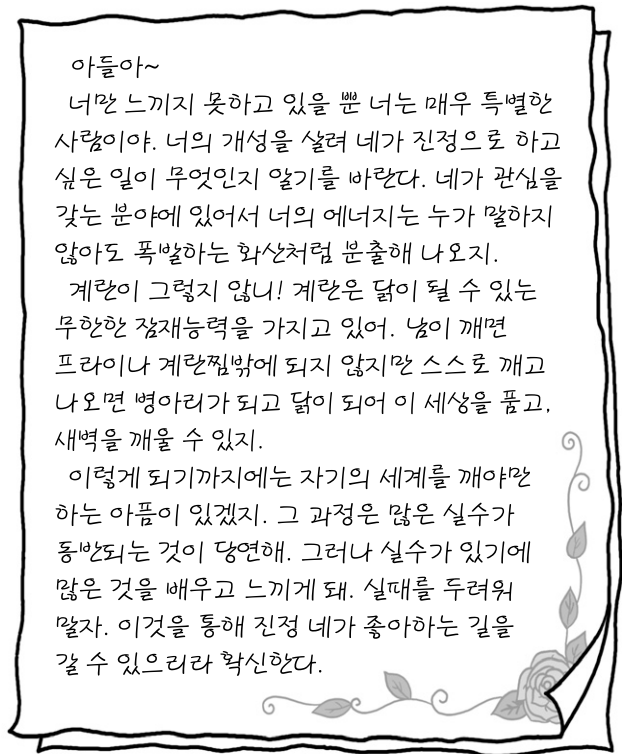 아들아~
너만 느끼지 못하고 있을 뿐 너는 매우 특별한
사람이야. 너의 개성을 살려 네가 진정으로 하고
싶은 일이 무엇인지 알기를 바란다. 네가 관심을
갖는 분야에 있어서 너의 에너지는 누가 말하지
않아도 폭발하는 화산처럼 분출해 나오지.
계란이 그렇지 않니! 계란은 닭이 될 수 있는
무한한 잠재능력을 가지고 있어. 남이 깨면
프라이나 계란찜밖에 되지 않지만 스스로 깨고
나오면 병아리가 되고 닭이 되어 이 세상을 품고,
새벽을 깨울 수 있지.
이렇게 되기까지에는 자기의 세계를 깨야만
하는 아픔이 있겠지. 그 과정은 많은 실수가
동반되는 것이 당연해. 그러나 실수가 있기에
많은 것을 배우고 느끼게 돼. 실패를 두려워
말자. 이것을 통해 진정 네가 좋아하는 길을
갈 수 있으리라 확신한다.